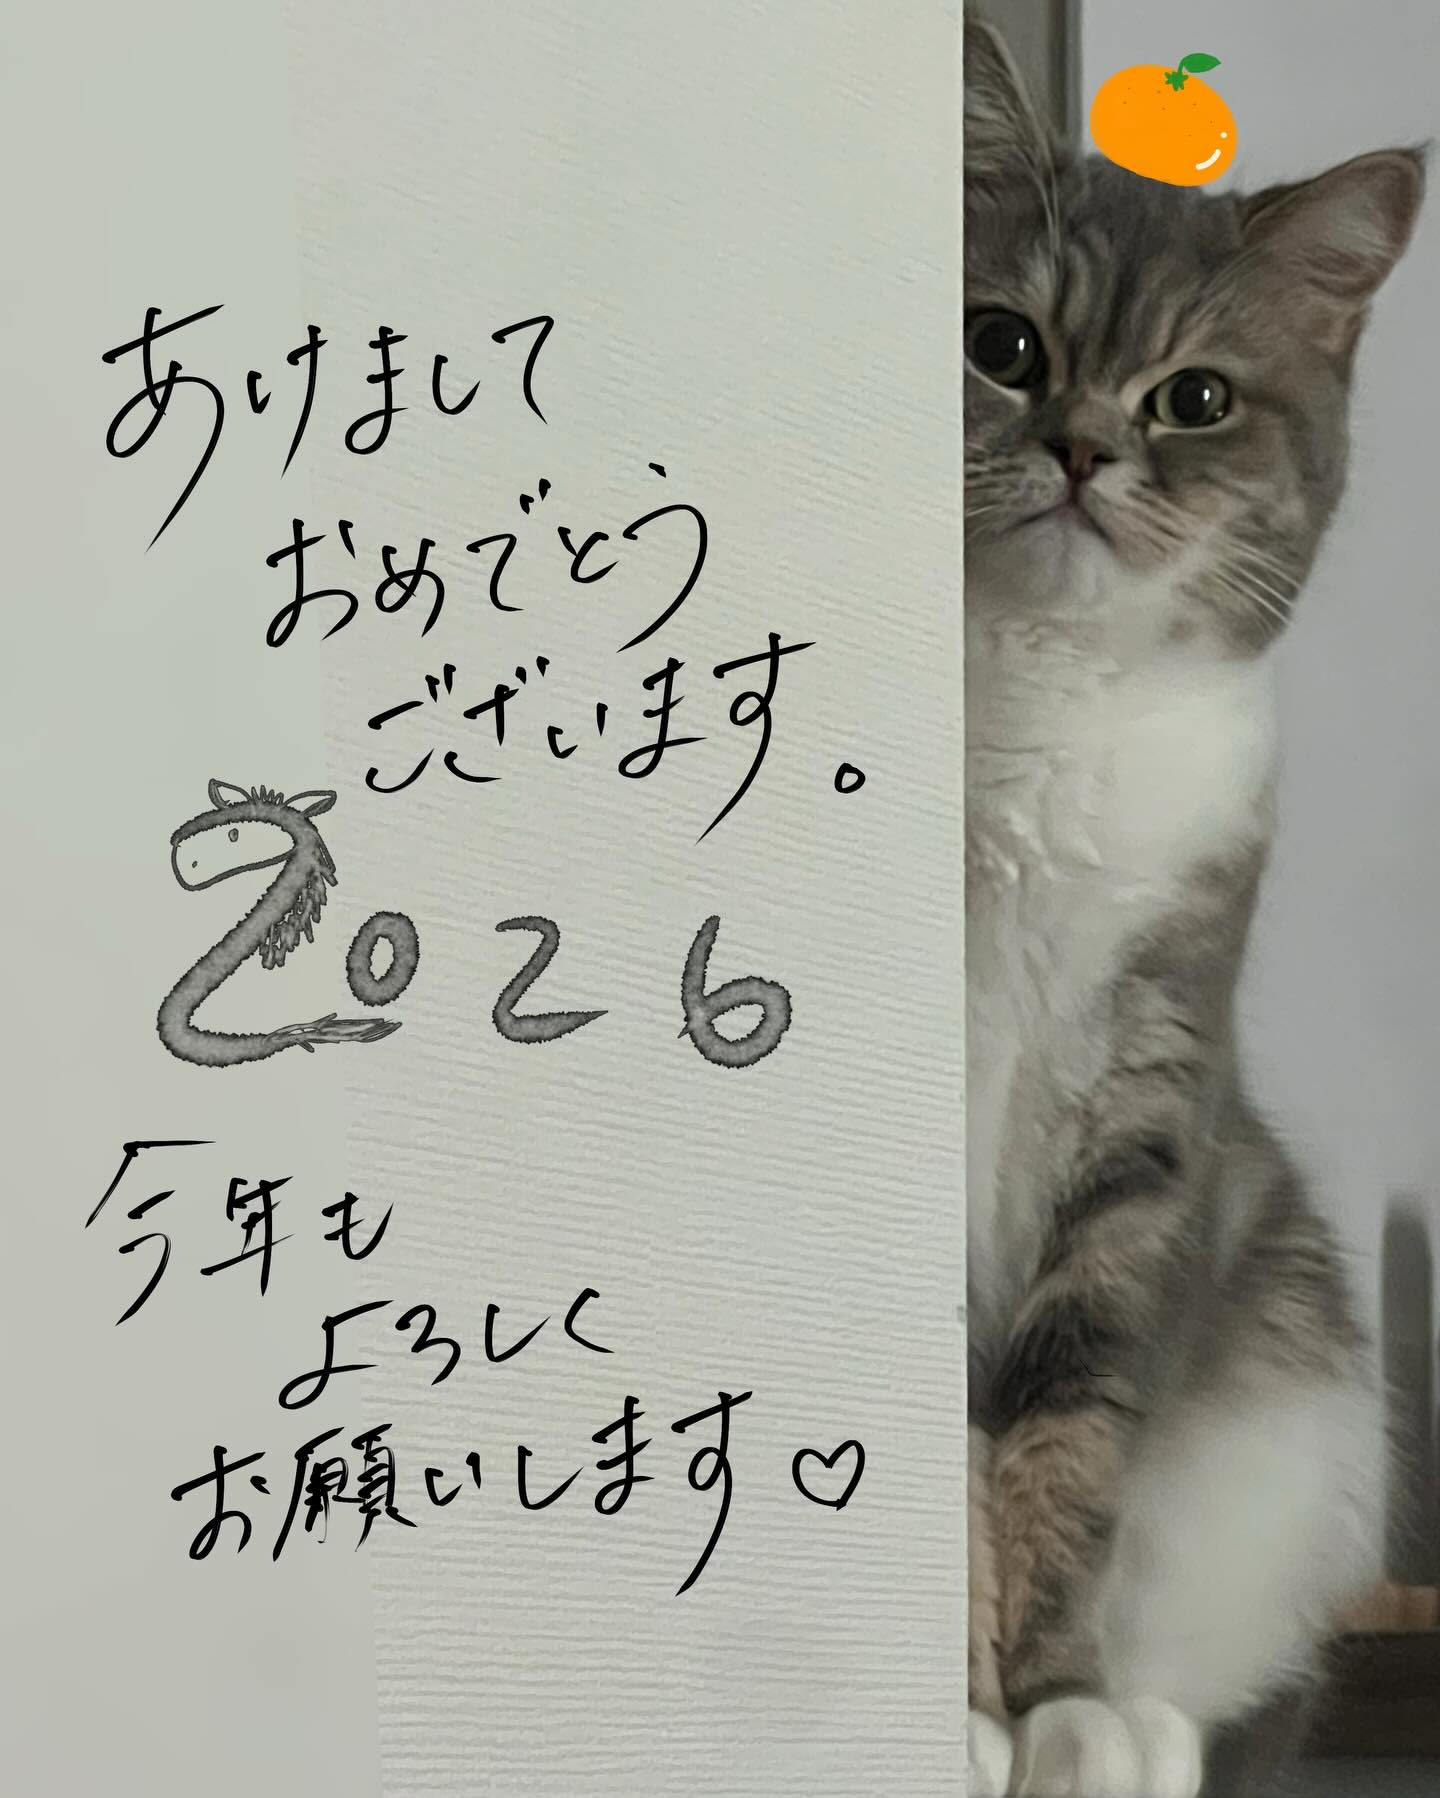 あけまして
おめでとう
ございます。
2026
今年も
よろしく
お願いします♡